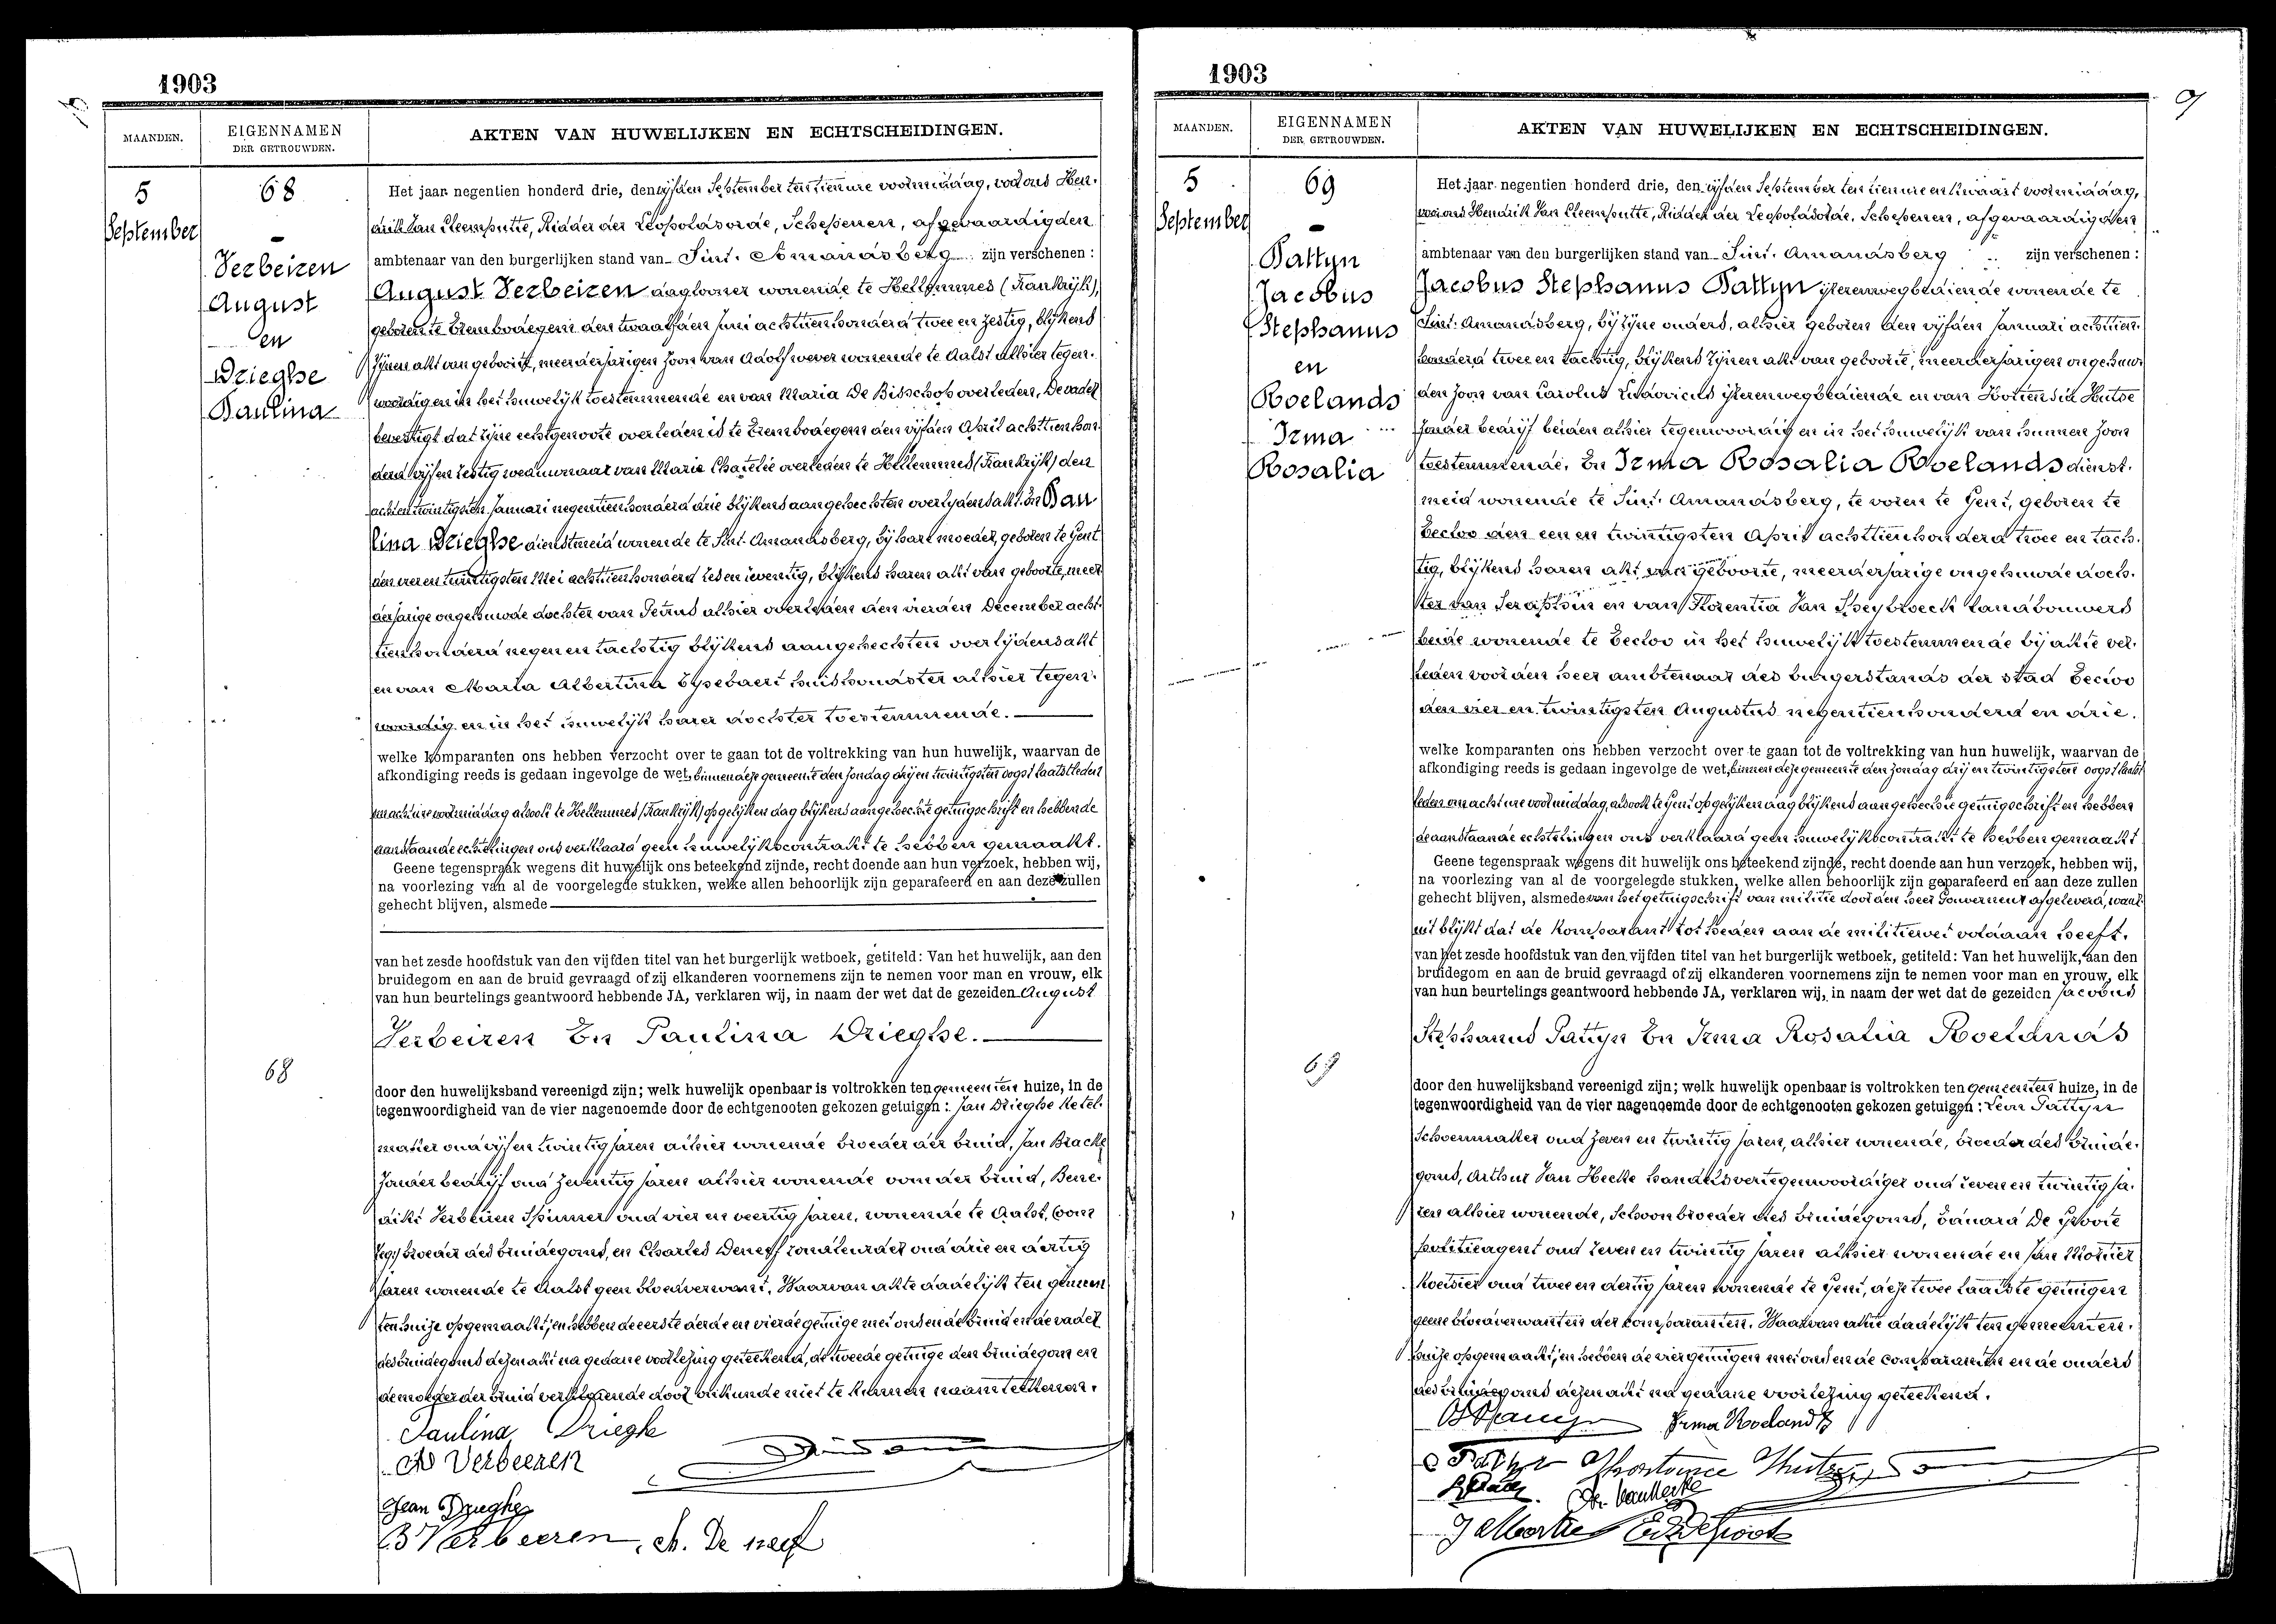 1903
MAANDEN.
EIGENNAMEN
DER GETROUWDEN.
AKTEN VAN HUWELIJKEN EN ECHTSCHEIDINGEN.
5
September
68
Verbeiren
August
en
Drieghe
Paulina
68
Het jaar negentien honderd drie, den vijfden September ten tien ure voormiddag, voor ons Hen-
drik Van Cleemputte, Ridder der Leopoldsorde, Schepenen, afgevaardigden
ambtenaar van den burgerlijken stand van Sint. Amandsberg zijn verschenen :
August Verbeiren daglooner wonende te Hellemmes (Frankrijk),
geboren te Erembodegem den twaalfden Juni achttien honderd twee en zestig, blijkens
zijnen akt van geboorte, meerderjarigen zoon van Adolf wever wonende te Aalst alhier tegen-
woordig en in het huwelijk toestemmende en van Maria De Bisschop overleden, De vader
bevestigt dat zijne echtgenoote overleden is te Erembodegem den vijfden April achttien hon-
derd vijf en zestig weduwnaar van Marie Chatelée overleden te Hellemmes (Frankrijk) den
acht en twintigsten Januari negentien honderd drie blijkens aangehechten overlijdensakt. En Pau
lina Drieghe dienstmeid wonende te Sint. Amandsberg, bij hare moeder, geboren te Gent
den vier en twintigsten Mei achttien honderd zes en zeventig, blijkens haren akt van geboorte, meer-
derjarige ongehuwde dochter van Petrus alhier overleden den vierden December acht-
tien honderd negen en tachtig blijkens aangehechten overlijdensakt
en van Maria Albertina Eysebaert huishoudster alhier tegen-
woordig en in het huwelijk harer dochter toestemmende.
welke komparanten ons hebben verzocht over te gaan tot de voltrekking van hun huwelijk, waarvan de
afkondiging reeds is gedaan ingevolge de wet, binnen deze gemeente den zondag drij en twintigsten oogst laatstleden
om acht ure voormiddag alsook te Hellemmes (Frankrijk) op gelijken dag blijkens aangehechte getuigschrift en hebben de
aanstaande echtelingen ons verklaard geen huwelijkscontrakt te hebben gemaakt.
Geene tegenspraak wegens dit huwelijk ons beteekend zijnde, recht doende aan hun verzoek, hebben wij,
na voorlezing van al de voorgelegde stukken, welke allen behoorlijk zijn geparafeerd en aan deze zullen
gehecht blijven, alsmede
van het zesde hoofdstuk van den vijfden titel van het burgerlijk wetboek, getiteld: Van het huwelijk, aan den
bruidegom en aan de bruid gevraagd of zij elkanderen voornemens zijn te nemen voor man en vrouw, elk
van hun beurtelings geantwoord hebbende JA, verklaren wij, in naam der wet dat de gezeiden August
Verbeiren En Paulina Drieghe.
door den huwelijksband vereenigd zijn; welk huwelijk openbaar is voltrokken ten gemeenten huize, in de
tegenwoordigheid van de vier nagenoemde door de echtgenooten gekozen getuigen : Jan Drieghe ketel-
maker oud vijf en twintig jaren alhier wonende broeder der bruid, Jan Bracke
zonder bedrijf oud zeventig jaren alhier wonende oom der bruid, Bene-
dikt Verbeiren Spinner oud vier en veertig jaren, wonende te Aalst,
broeder des bruidegoms, en Charles Deneff oud drie en dertig
jaren wonende te Aalst geen bloedverwant. Waarvan akte dadelijk ten gemeen
ten huize opgemaakt, en hebben de eerste derde en vierde getuige met ons en de bruid en de vader
des bruidegoms dezen akt na gedane voorlezing geteekend, de tweede getuige den bruidegom en
de moeder der bruid verklarende door onkunde niet te kunnen naamteekenen.
Paulina Drieghe
Ad Verbeeren
Jean Drieghe
B Verbeeren, ch. De neef
1903
9
MAANDEN.
EIGENNAMEN
DER GETROUWDEN.
AKTEN VAN HUWELIJKEN EN ECHTSCHEIDINGEN.
5
September
69
Pattyn
Jacobus
Stephanus
en
Roelands
Irma
Rosalia
69
Het jaar negentien honderd drie, den vijfden September ten tien ure en kwaart voormiddag,
voor ons Hendrik Van Cleemputte, Ridder der Leopoldsorde, Schepenen, afgevaardigden
ambtenaar van den burgerlijken stand van Sint. Amandsberg zijn verschenen :
Jacobus Stephanus Pattyn ijzerenwegbediende wonende te
Sint. Amandsberg, bij zijne ouders, alhier geboren den vijfden Januari achttien-
honderd twee en tachtig, blijkens zijnen akt van geboorte, meerderjarigen ongehuw-
den zoon van Carolus Ludovicus ijzerenwegbediende en van Hortensia Hutse
zonder bedrijf beiden alhier tegenwoordig en in het huwelijk van hunnen zoon
toestemmende. En Irma Rosalia Roelands dienst-
meid wonende te Sint. Amandsberg, te voren te Gent, geboren te
Eecloo den een en twintigsten April achttien honderd twee en tach-
tig, blijkens haren akt van geboorte, meerderjarige ongehuwde doch-
ter van Seraphin en van Florentia Van Speybroeck landbouwers
beide wonende te Eecloo in het huwelijk toestemmende bij akte ver-
leden voor den heer ambtenaar des burgerstands der stad Eecloo
den vier en twintigsten Augustus negentien honderd en drie.
welke komparanten ons hebben verzocht over te gaan tot de voltrekking van hun huwelijk, waarvan de
afkondiging reeds is gedaan ingevolge de wet, binnen deze gemeente den zondag drij en twintigsten oogst laatst
leden om acht ure voormiddag, alsook te Gent op gelijken dag blijkens aangehechte getuigschrift en hebben
de aanstaande echtelingen ons verklaard geen huwelijkscontrakt te hebben gemaakt
Geene tegenspraak wegens dit huwelijk ons beteekend zijnde, recht doende aan hun verzoek, hebben wij,
na voorlezing van al de voorgelegde stukken, welke allen behoorlijk zijn geparafeerd en aan deze zullen
gehecht blijven, alsmede van het getuigschrift van militie door den heer Gouverneur afgeleverd, waar-
uit blijkt dat de komparant tot heden aan de militiewet voldaan heeft.
van het zesde hoofdstuk van den vijfden titel van het burgerlijk wetboek, getiteld: Van het huwelijk, aan den
bruidegom en aan de bruid gevraagd of zij elkanderen voornemens zijn te nemen voor man en vrouw, elk
van hun beurtelings geantwoord hebbende JA, verklaren wij, in naam der wet dat de gezeiden Jacobus
Stephanus Pattyn En Irma Rosalia Roelands
door den huwelijksband vereenigd zijn; welk huwelijk openbaar is voltrokken ten gemeenten huize, in de
tegenwoordigheid van de vier nagenoemde door de echtgenooten gekozen getuigen : Leon Pattyn
Schoenmaker oud zeven en twintig jaren, alhier wonende, broeder des bruide-
goms, Arthur Van Hecke handelsvertegenwoordiger oud zeven en twintig ja-
ren alhier wonende, Schoonbroeder des bruidegoms, Eduard De Groote
politieagent oud zeven en twintig jaren alhier wonende en Jan Mortier
koetsier oud twee en dertig jaren wonende te Gent, deze twee laatste getuigen
geene bloedverwanten der komparanten. Waarvan akte dadelijk ten gemeenten-
huize opgemaakt, en hebben de vier getuigen met ons en de comparanten en de ouders
des bruidegoms dezen akt na gedane voorlezing geteekend.
Irma Roelands
Ar. Van Hecke
J Mortier Ed. De Groote